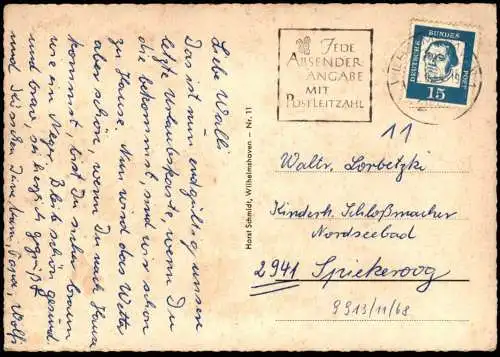 Liebe Walli
Das ist nun endgültig unsere
letzte Urlaubskarte, wenn Du
die bekommst, sind wir schon
zu Hause. Nun wird das Wetter
aber schön, wenn Du nach Hause
kommst, bist Du sicher braun
wie ein Neger. Bleib schön gesund
und brav, sei herzlich gegrüßt
und Dein Papa, Wolfi
Horst Schmidt, Wilhelmshaven - Nr. 11
JEDE
ABSENDER
ANGABE
MIT
POSTLEITZAHL
DEUTSCHE BUNDES POST
15
11
Waltr. Lorbetzki
Kinderh. Schloßmacher
Nordseebad
2941 Spiekeroog
9913/11/68